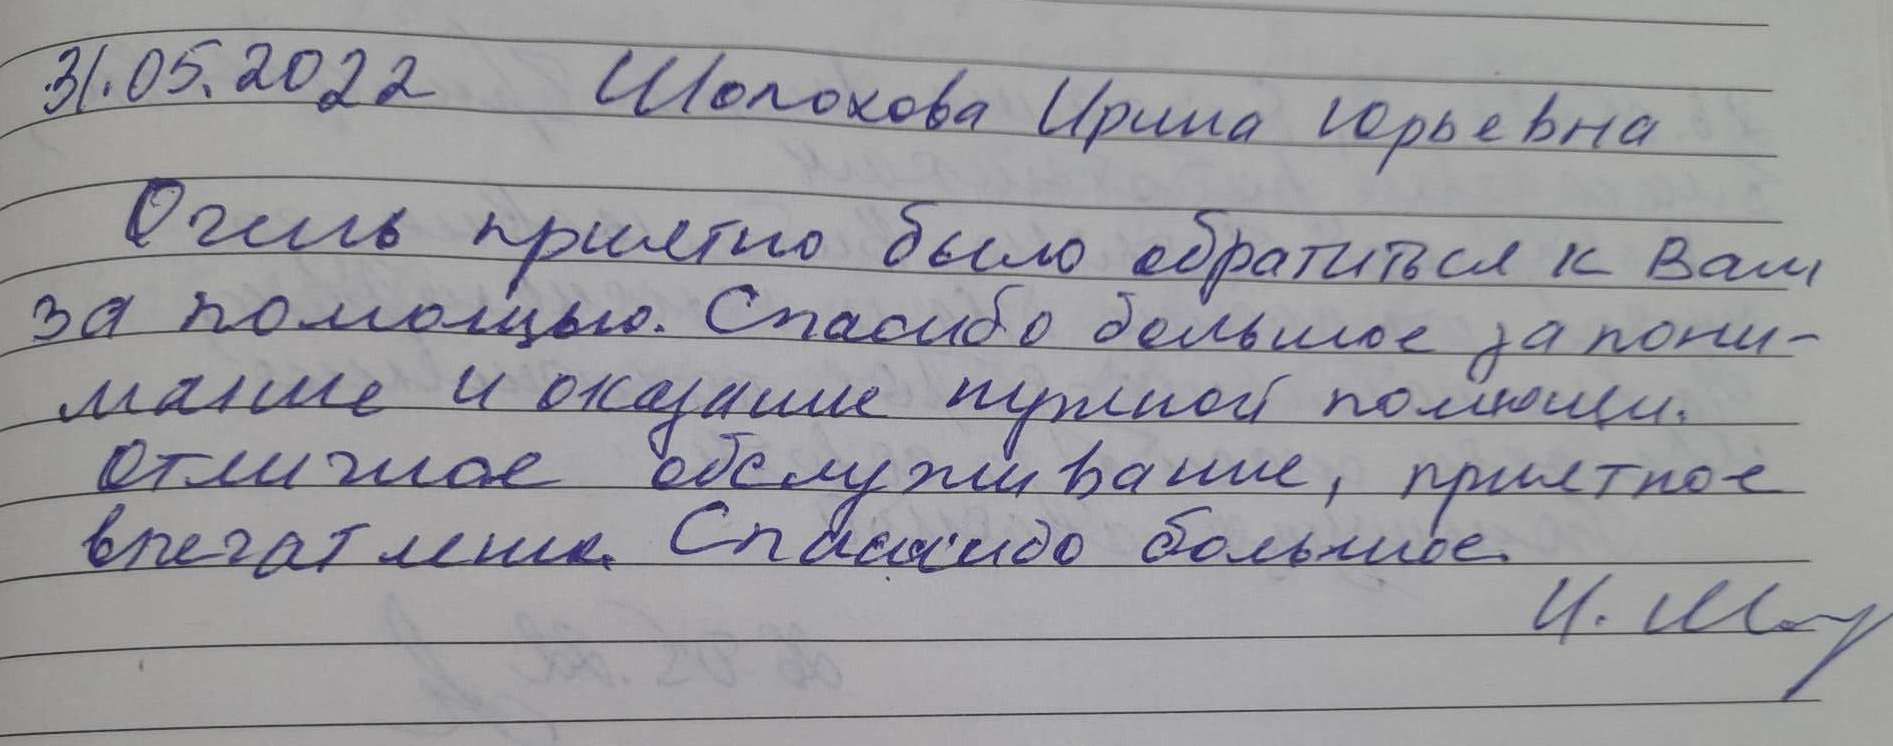 31.05.2022 Шолохова Ирина Юрьевна
Очень приятно было обратиться к Вам
за помощью. Спасибо большое за пони-
мание и оказание нужной помощи.
Отличное обслуживание, приятное
впечатление. Спасибо большое.
И. Шо